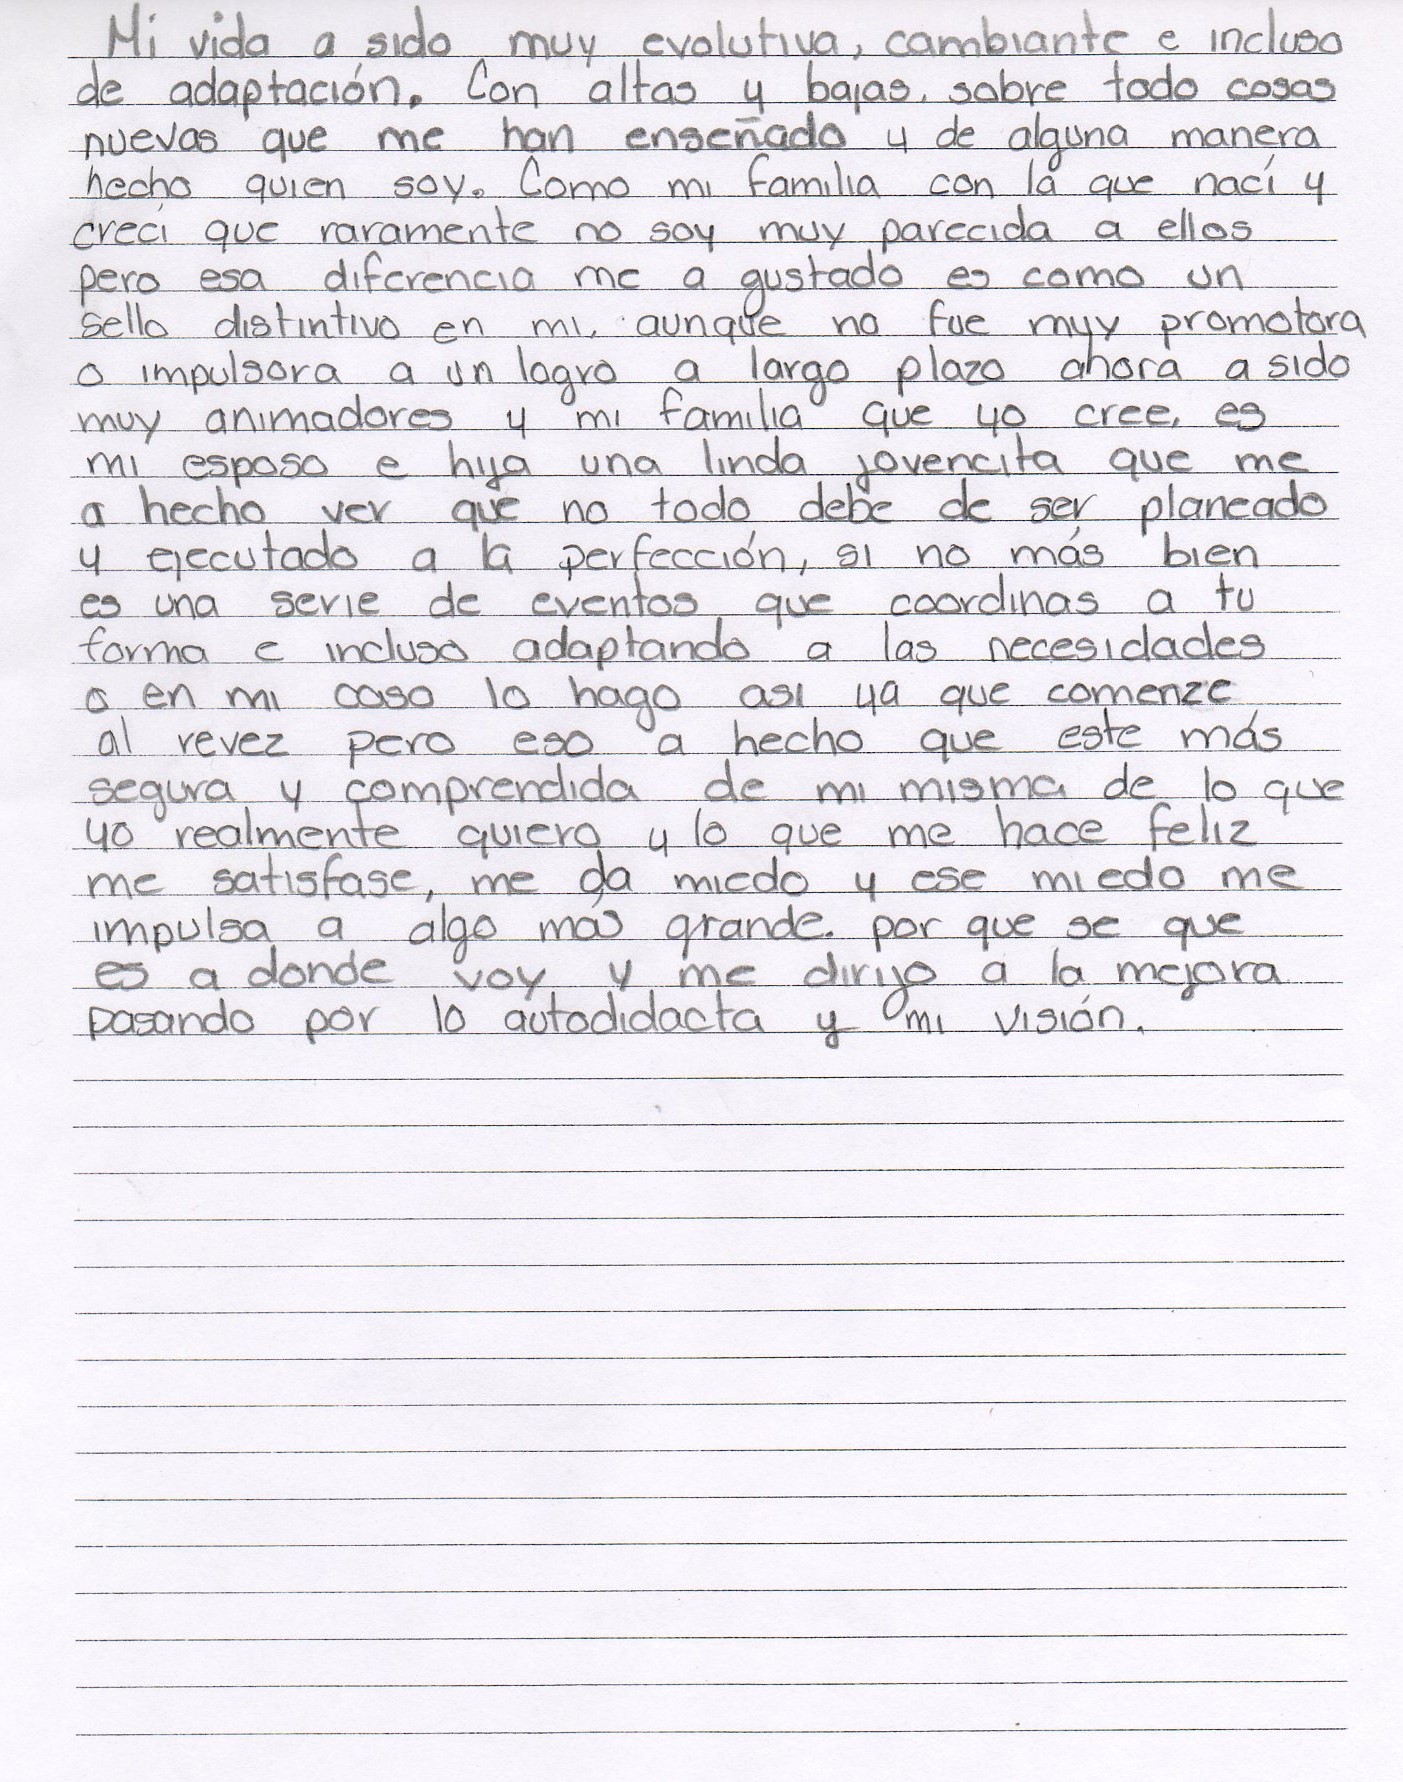 Mi vida a sido muy evolutiva, cambiante e incluso
de adaptación. Con altas y bajas, sobre todo cosas
nuevas que me han enseñado y de alguna manera
hecho quien soy. Como mi familia con la que nací y
crecí que raramente no soy muy parecida a ellos
pero esa diferencia me a gustado es como un
sello distintivo en mi, aunque no fue muy promotora
o impulsora a un logro a largo plazo ahora a sido
muy animadores y mi familia que yo cree, es
mi esposo e hija una linda jovencita que me
a hecho ver que no todo debe de ser planeado
y ejecutado a la perfección, si no más bien
es una serie de eventos que coordinas a tu
forma e incluso adaptando a las necesidades
o en mi caso lo hago asi ya que comenze
al revez pero eso a hecho que este más
segura y comprendida de mi misma de lo que
yo realmente quiero y lo que me hace feliz
me satisfase, me da miedo y ese miedo me
impulsa a algo más grande. por que se que
es a donde voy y me dirijo a la mejora
pasando por lo autodidacta y mi visión.